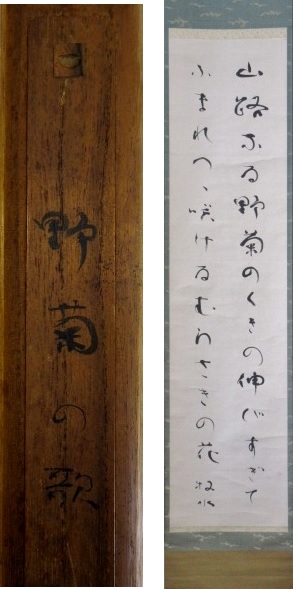 野菊の歌
山路なる野菊のくきの伸びすぎて
ふまれつゝ咲けるむらさきの花 牧水